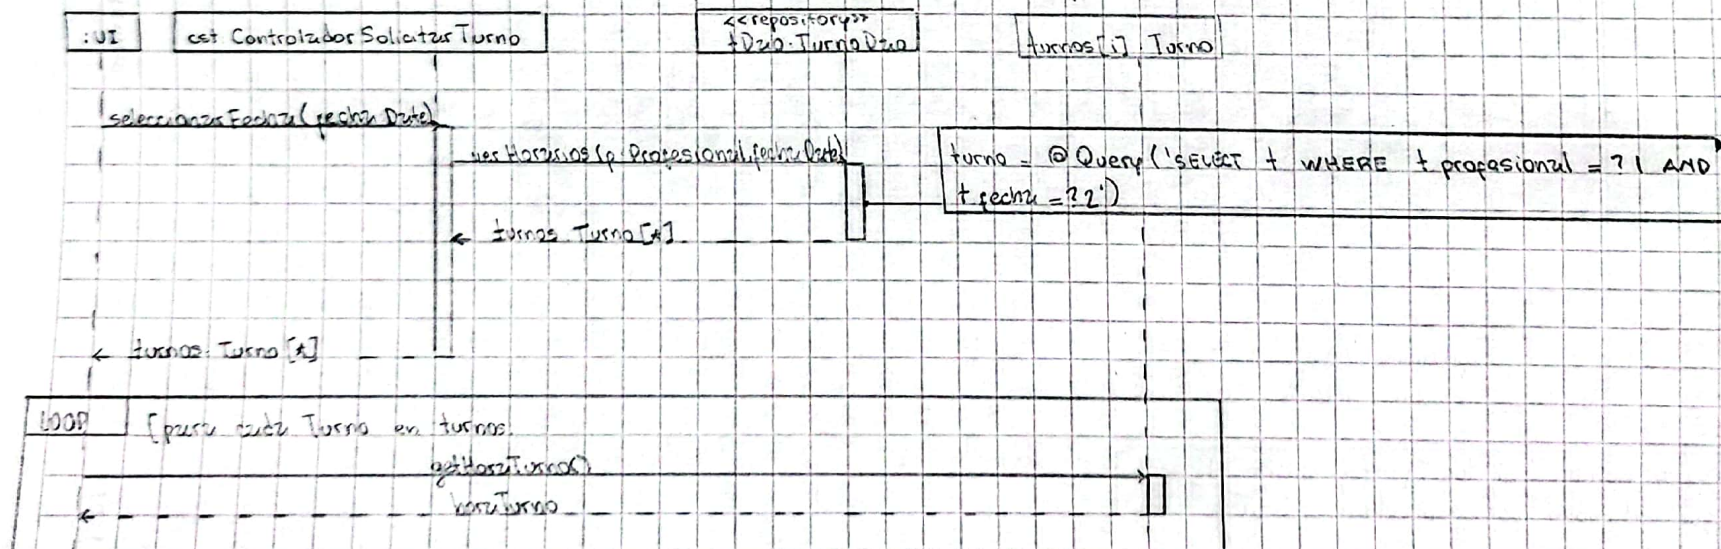 :UI
cst ControladorSolicitarTurno
<<repository>>
tDao: TurnoDao
turnos[i]: Turno
seleccionarFecha(fecha: Date)
verHorarios(p: Profesional, fecha: Date)
turno = @Query('SELECT t WHERE t.profesional = ?1 AND
t.fecha = ?2')
turnos: Turno[*]
turnos: Turno[*]
LOOP
[para cada Turno en turnos]
getHoraTurno()
horaTurno